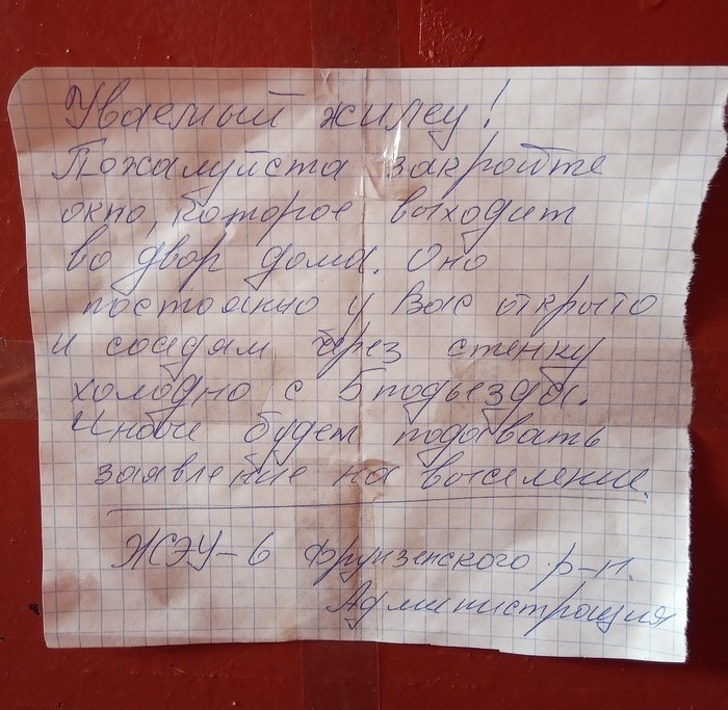 Уваемый жилец!
Пожалуйста закройте
окно, которое выходит
во двор дома. Оно
постоянно у Вас открыто
и соедям через стенку
холодно с 5 подьезда.
Иначе будем подавать
заявление на выселение.
ЖЭУ-6 Фрунзенского р-н.
Администрация